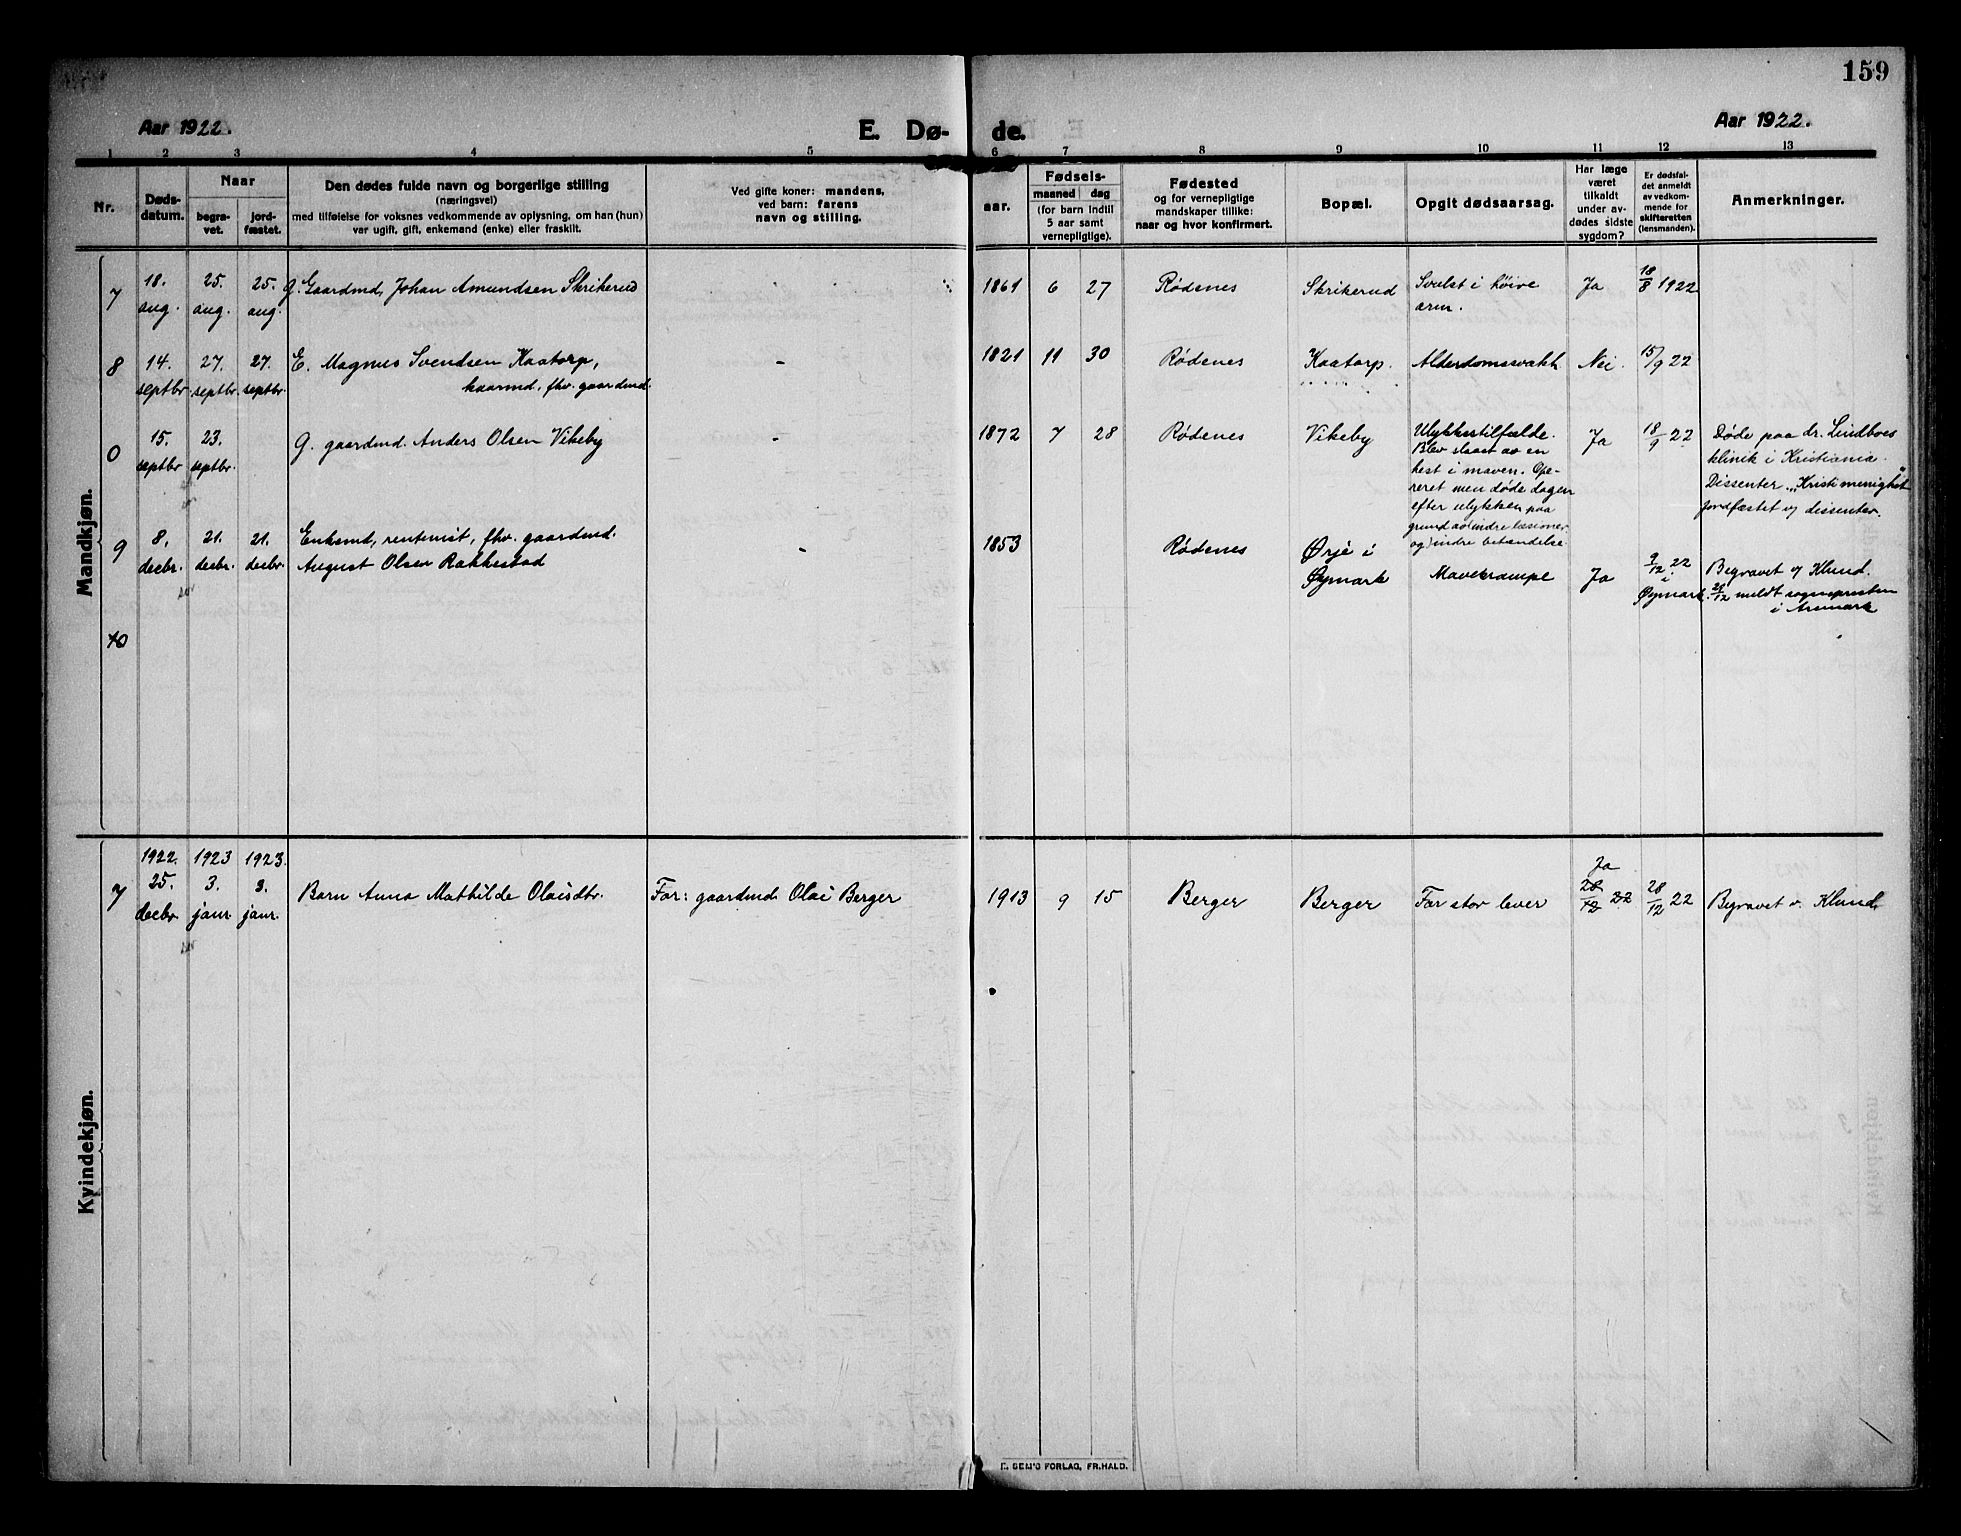 159
Aar 1922.
E. Dø-
de.
Aar 1922.
1 2 3 4 5 6 7 8 9 10 11 12 13
Nr.
Døds-
datum.
Naar
begra-
vet.
jord-
fæstet.
Den dødes fulde navn og borgerlige stilling
(næringsvei)
med tilføielse for voksnes vedkommende av oplysning, om han (hun)
var ugift, gift, enkemand (enke) eller fraskilt.
Ved gifte koner: mandens,
ved barn: farens
navn og stilling.
Fødsels-
aar.
maaned
dag
(for barn indtil
5 aar samt
vernepligtige).
Fødested
og for vernepligtige
mandskaper tillike:
naar og hvor konfirmert.
Bopæl.
Opgit dødsaarsag.
Har læge
været
tilkaldt
under av-
dødes sidste
sygdom?
Er dødsfal-
det anmeldt
av vedkom-
mende for
skifteretten
(lensmanden).
Anmerkninger.
Mandkjøn.
7
18.
aug.
25.
aug.
25.
aug.
g. Gaardmd. Johan Amundsen Skrikerud
1861 6 27
Rødenes
Skrikerud
Svulst i høire
arm.
Ja
18/8 1922
8
14.
septbr
27.
septbr.
27.
septbr.
E. Magnus Svendsen Kaatorp,
kaarmd, fhv. gaardmd.
-
1821 11 30
Rødenes
Kaatorp.
Alderdomssvakh
Nei.
15/9 22
0
15.
septbr
23.
septbr.
G. gaardmd. Anders Olsen Vikeby
-
1872 7 28
Rødenes
Vikeby
Ulykkestilfælde.
Blev slaat av en
hest i maven. Ope-
reret men døde dagen
efter ulykken paa
grund av indre læsioner
og indre betændelse.
Ja
18/9 22
Døde paa dr. Lindboes
klinik i Kristiania.
Dissenter. "Kristi menighet"
jordfæstet av dissenter.
9
8.
decbr.
21.
decbr.
21.
decbr.
Enkemd, rentenist, fhv. gaardmd.
August Olsen Rakkestad
-
1853
Rødenes
Ørje i
Øymark
Mavekrampe
Ja
9/12 22
i
Øymark.
Begravet v Klund.
21/12 meldt sognepresten
i Aremark
10
Kvindekjøn.
7
1922.
25.
decbr.
1923
3.
janr.
1923.
3.
janr.
Barn Anna Mathilde Olaisdtr.
Far: gaardmd Olai Berger
1913 9 15
Berger
Berger
For stor lever
Ja
28/12 22
28/12 22
Begravet v. Klund.
E. SEM'S FORLAG, FR.HALD.